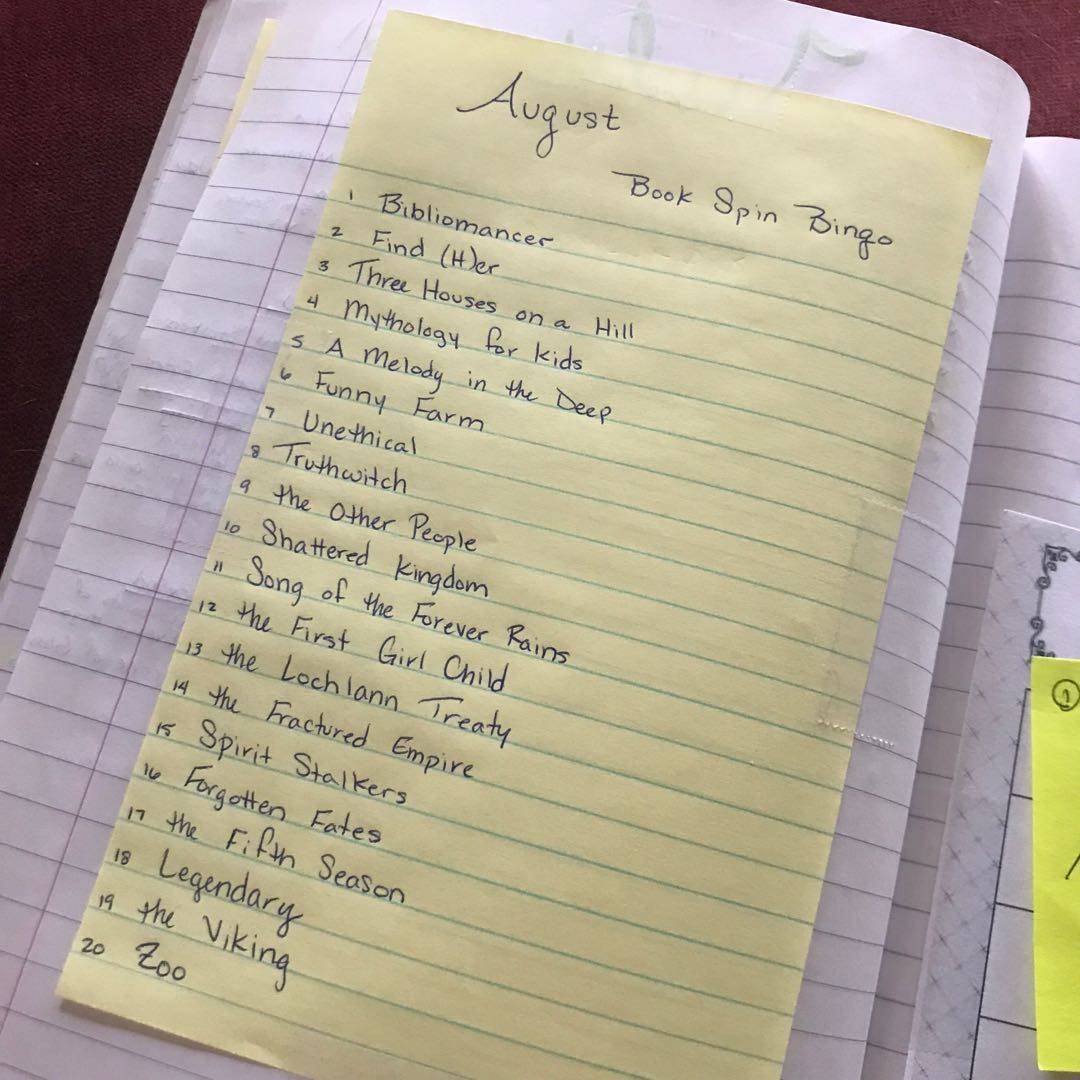 August
Book Spin Bingo
1 Bibliomancer
2 Find (H)er
3 Three Houses on a Hill
4 Mythology for kids
5 A Melody in the Deep
6 Funny Farm
7 Unethical
8 Truthwitch
9 the Other People
10 Shattered Kingdom
11 Song of the Forever Rains
12 the First Girl Child
13 the Lochlann Treaty
14 the Fractured Empire
15 Spirit Stalkers
16 Forgotten Fates
17 the Fifth Season
18 Legendary
19 the Viking
20 Zoo
1